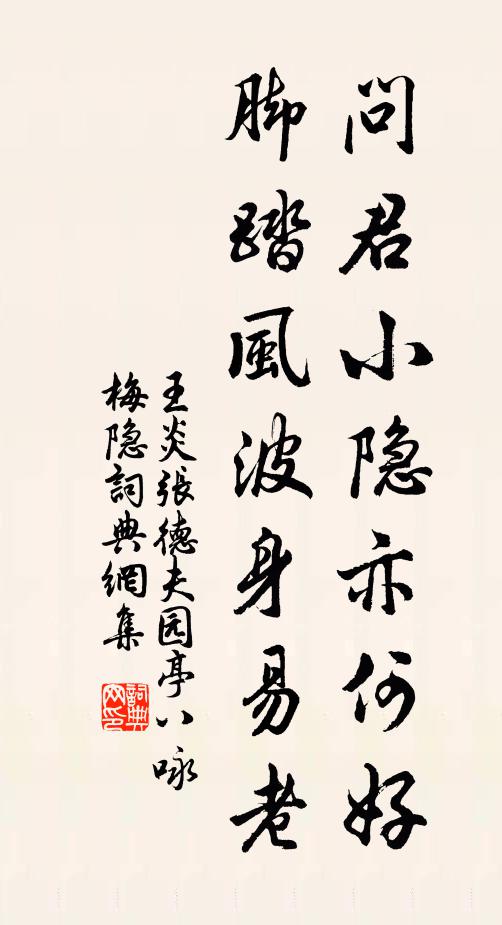 問君小隐亦何好
脚踏風波身易老
王炎張德夫园亭八咏
梅隐詞典網集
詞典网印